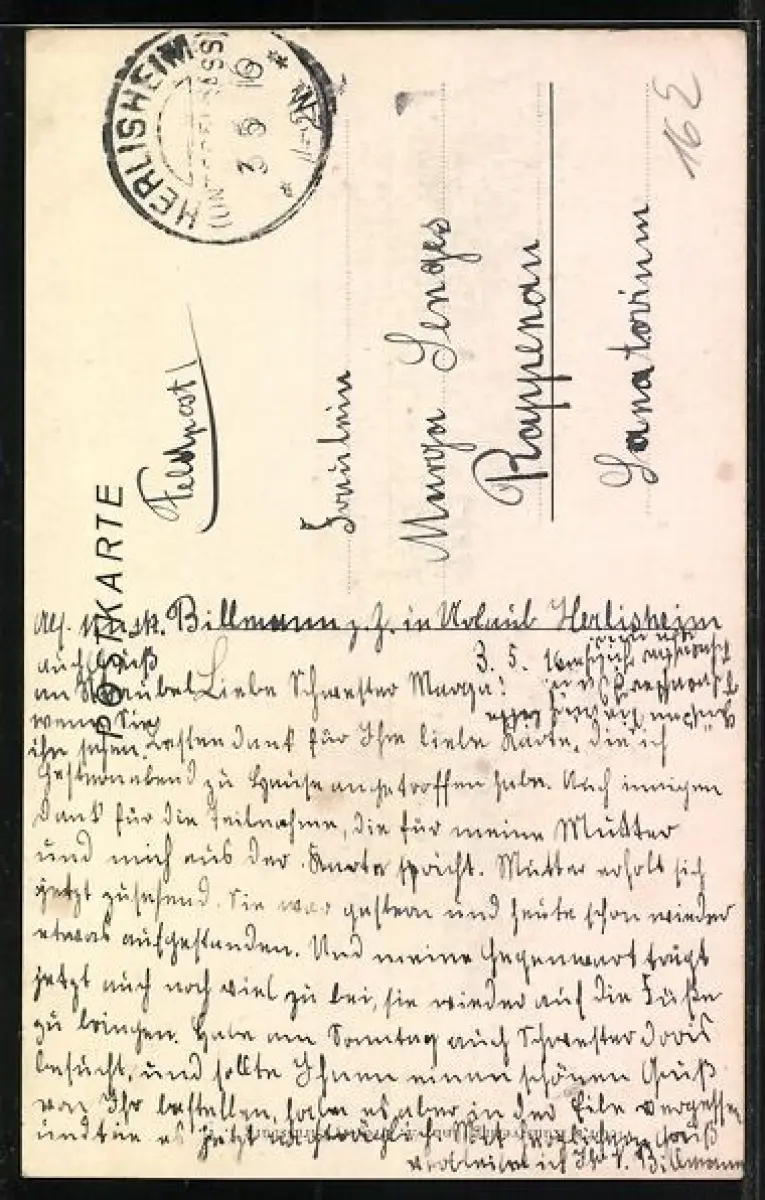 HERLISHEIM
(UNTERELSASS)
3 5 16
11-12N
16 E
POSTKARTE
Feldpost
Fräulein
Marga Senges
Rappenau
Sanatorium
Abs. Billmann z. Z. in Urlaub Herlisheim
3. 5.
auch Gruß
an
wenn Sie
ihn sehen.
Liebe Schwester Marga!
Besten Dank für Ihre liebe Karte, die ich
gestern abend zu Hause angetroffen habe. Auch innigen
Dank für die Teilnahme, die für meine Mutter
und mich aus der Karte spricht. Mutter erholt sich
jetzt zusehend. Sie war gestern und heute schon wieder
etwas aufgestanden. Und meine Gegenwart trägt
jetzt auch noch viel zu bei, sie wieder auf die Füße
zu bringen. Habe am Sonntag auch Schwester Doris
besucht, und sollte Ihnen einen schönen Gruß
von Ihr bestellen, habe es aber in der Eile vergessen
und tue es jetzt nachträglich. Mit herzlichem Gruß
verbleibe ich Ihr Billmann